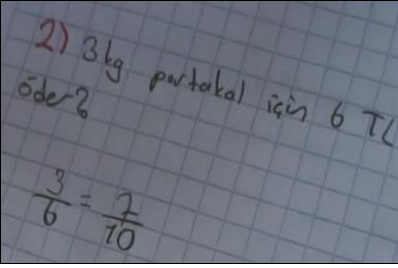 2) 3kg portakal için 6 TL
öder?
3/6 = 7/10